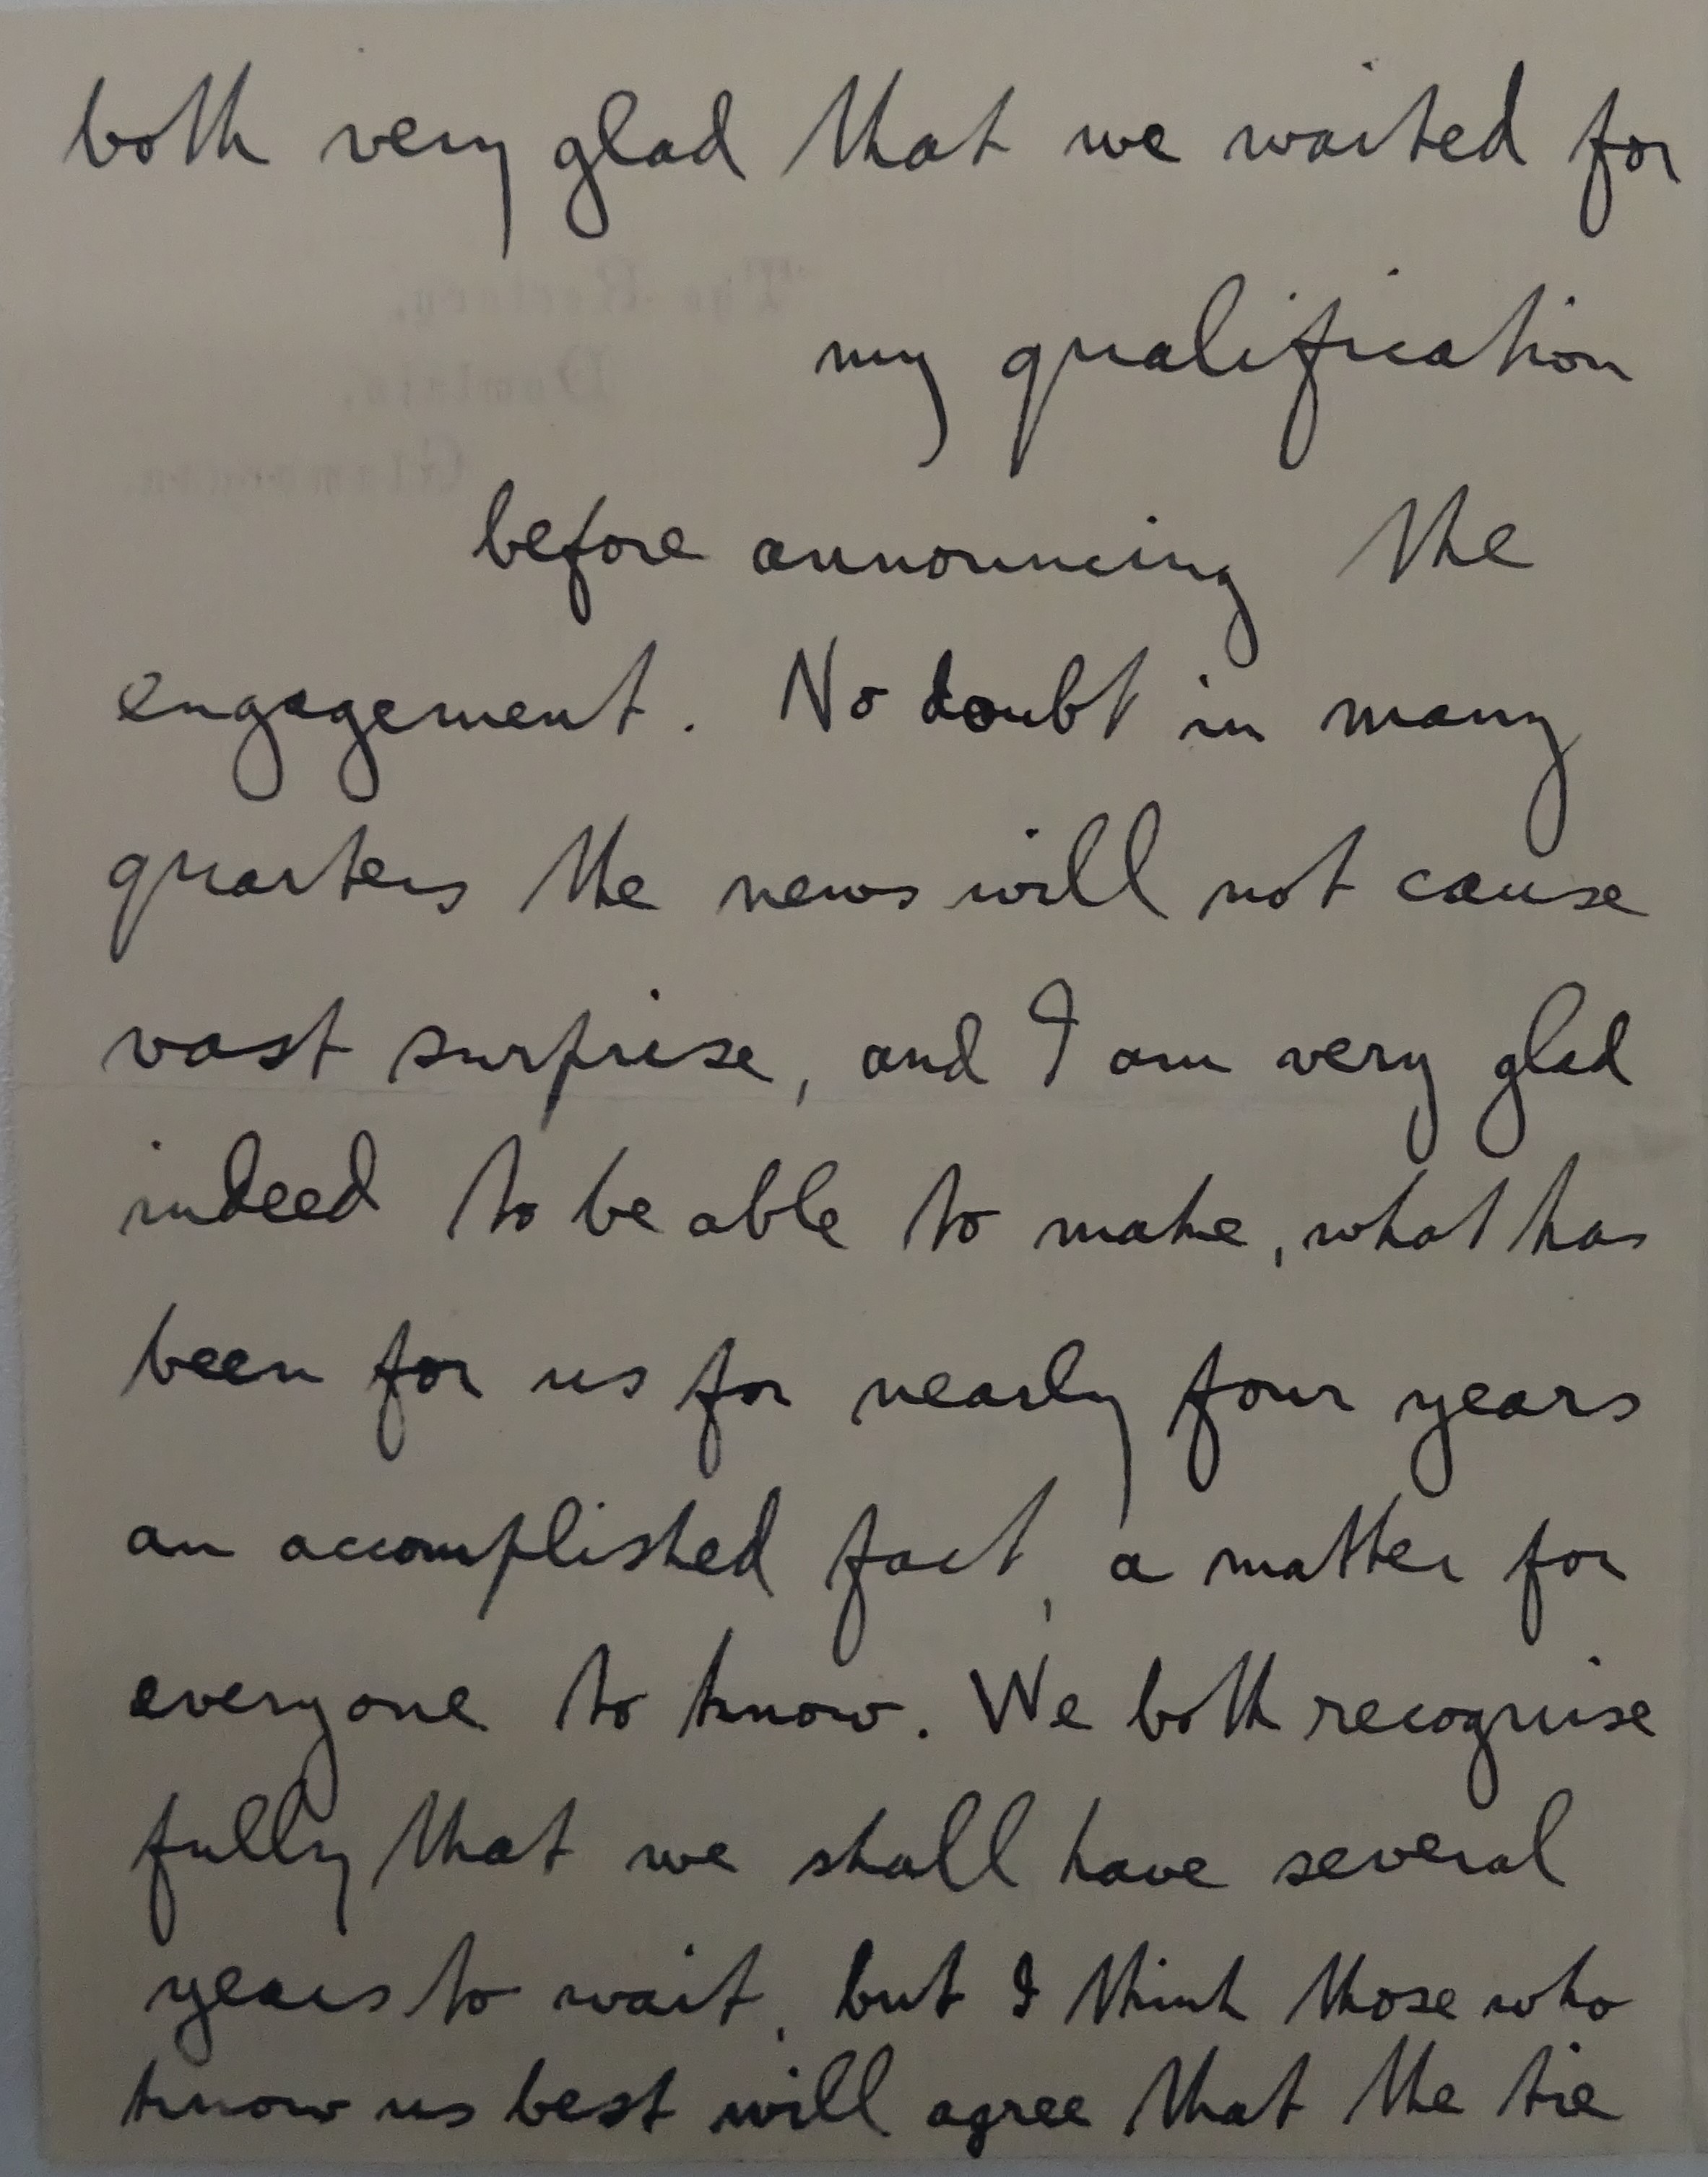 both very glad that we waited for
The Rectory,
my qualification
Dowlais,
Glamorgan.
before announcing the
engagement. No doubt in many
quarters the news will not cause
vast surprise, and I am very glad
indeed to be able to make, what has
been for us for nearly four years
an accomplished fact, a matter for
everyone to know. We both recognise
fully that we shall have several
years to wait, but I think those who
know us best will agree that the tie